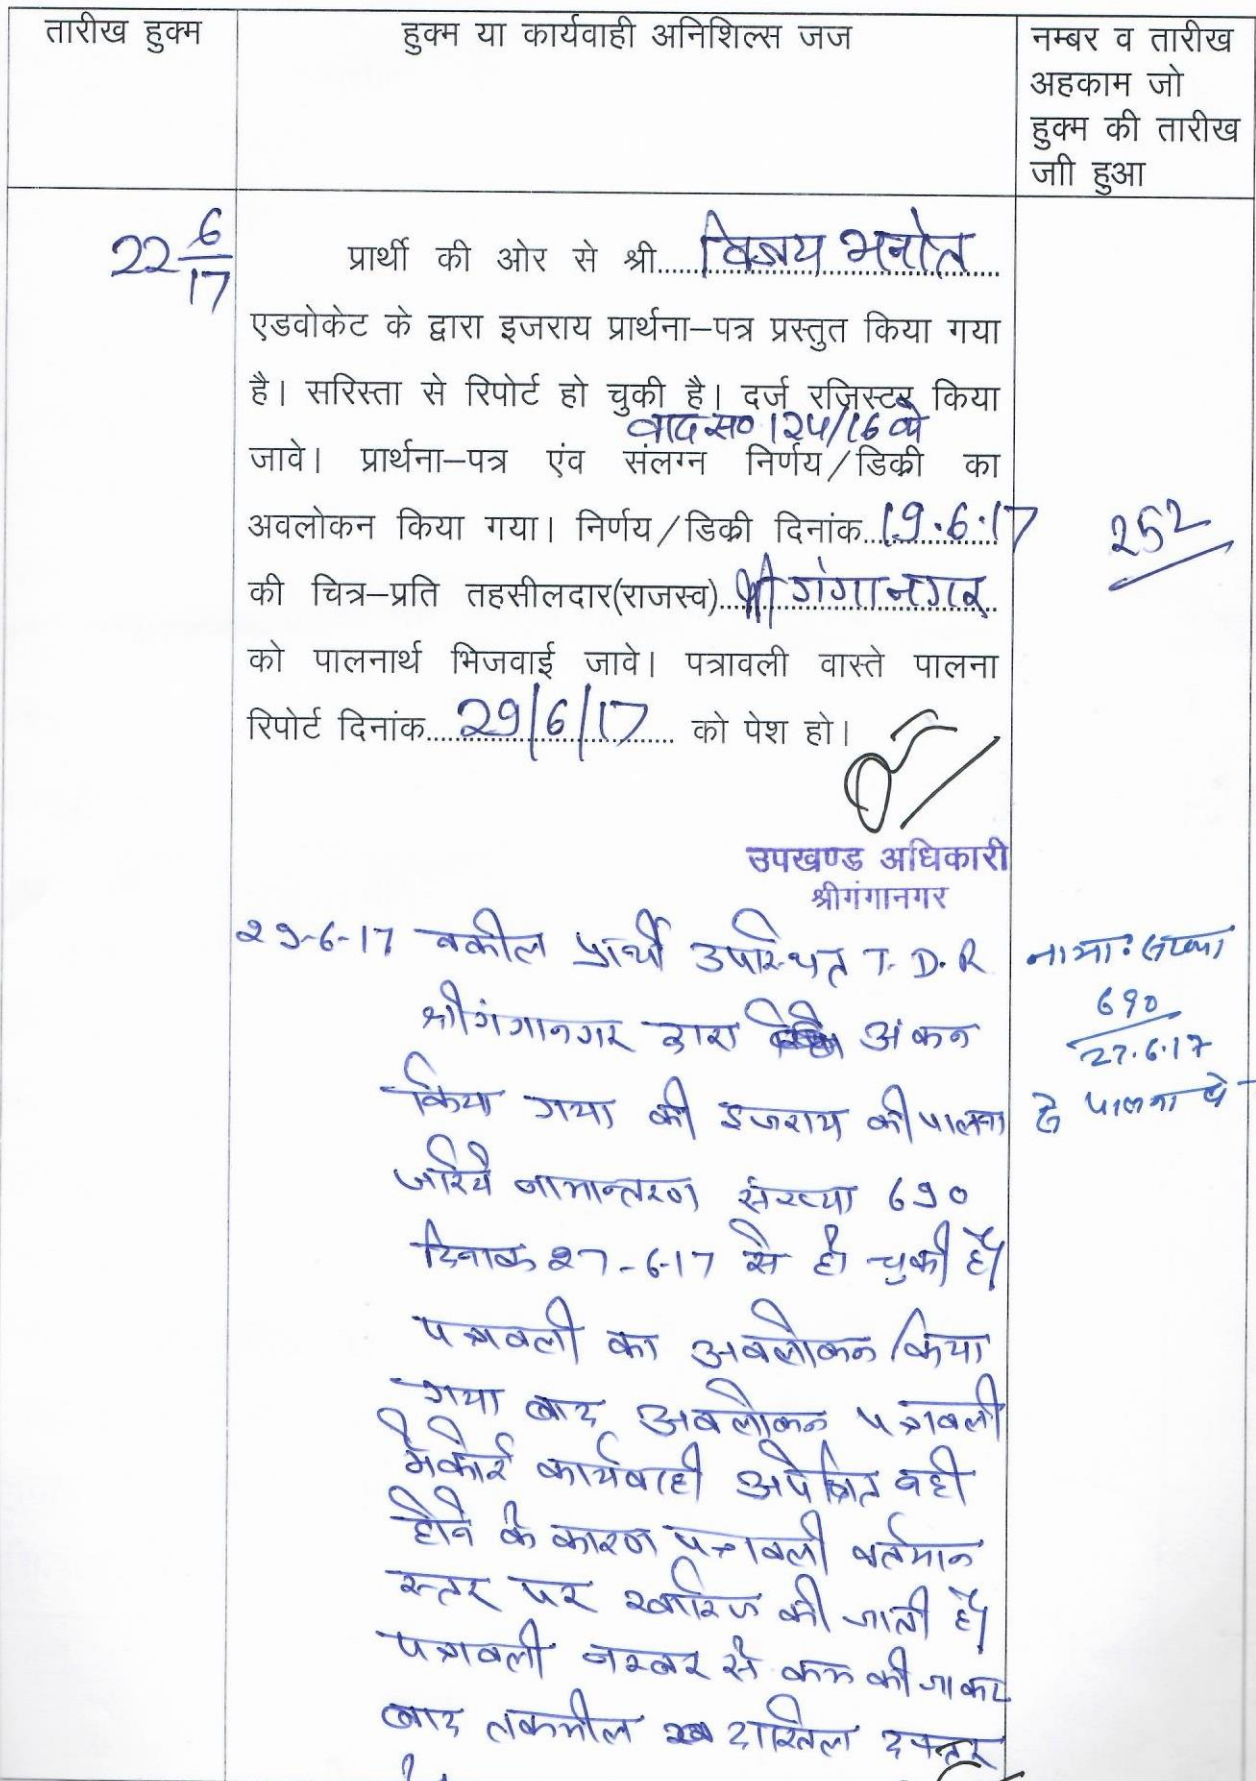 तारीख हुक्म
हुक्म या कार्यवाही अनिशिल्स जज
नम्बर व तारीख
अहकाम जो
हुक्म की तारीख
जाी हुआ
22 6/17
प्रार्थी की ओर से श्री विजय भनोत
एडवोकेट के द्वारा इजराय प्रार्थना–पत्र प्रस्तुत किया गया
है। सरिस्ता से रिपोर्ट हो चुकी है। दर्ज रजिस्टर किया
वाद स० 124/16 में
जावे। प्रार्थना–पत्र एंव संलग्न निर्णय/डिक्री का
अवलोकन किया गया। निर्णय/डिक्री दिनांक 19.6.17
252
की चित्र–प्रति तहसीलदार(राजस्व) श्री गंगानगर
को पालनार्थ भिजवाई जावे। पत्रावली वास्ते पालना
रिपोर्ट दिनांक 29/6/17 को पेश हो।
उपखण्ड अधिकारी
श्रीगंगानगर
29-6-17 वकील प्रार्थी उपस्थित T.D.R
श्रीगंगानगर द्वारा अंकन
किया गया की इजराय की पालना
जरिये नामान्तरण संख्या 690
दिनांक 27-6-17 से हो चुकी है।
पत्रावली का अवलोकन किया
गया बाद अवलोकन पत्रावली
में कोई कार्यवाही अपेक्षित नही
होने के कारण पत्रावली वर्तमान
स्तर पर खारिज की जाती है।
पत्रावली नम्बर से कम की जाकर
बाद तकमील दाखिल दफ्तर
नामा: संख्या
690
27.6.17
पालना